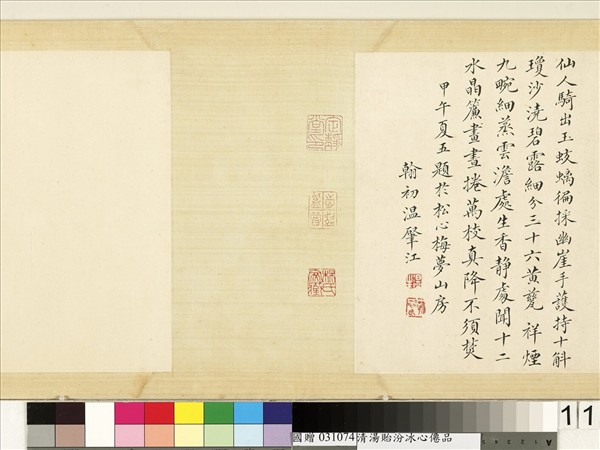 仙人騎出玉蛟螭徧採幽崖手護持十斛
瓊沙澆碧露細分三十六黃甆 祥煙
九畹細蒸雲澹處生香靜處聞十二
水晶簾畫畫捲萬枝真降不須焚
甲午夏五題於松心梅夢山房
翰初溫肇江
定靜堂
國贈 031074 清湯貽汾冰心僊品
11